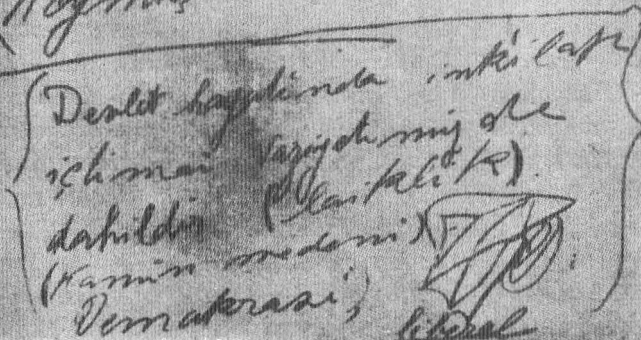 Devlet hayatında inkilap
içtimai vaziyetimiz de
dahildir (laiklik)
(Kanun medeni)
Demokrasi,
liberal